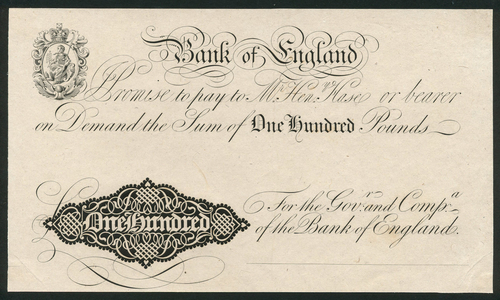 Bank of England
I Promise to pay to Mr. Hen.y Hase, or bearer
on Demand the Sum of One Hundred Pounds
£ One Hundred
For the Gov.r and Comp.a
of the Bank of England.